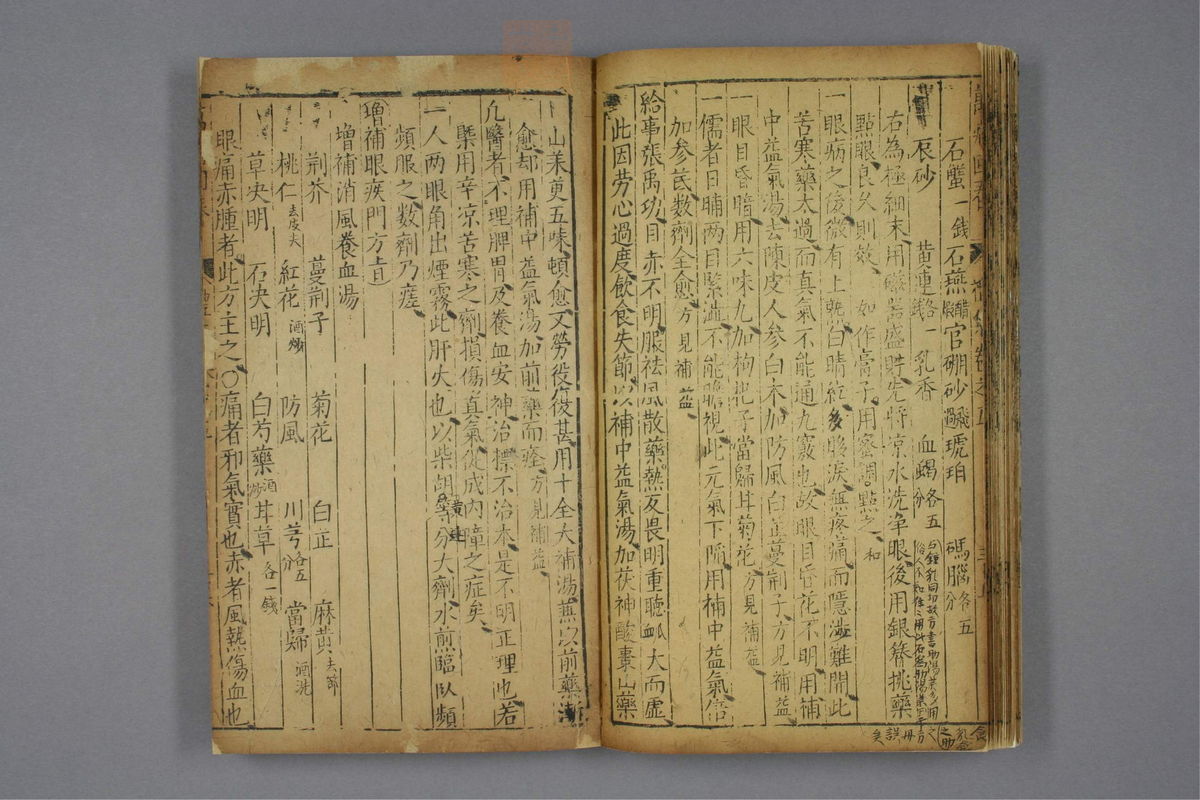 石蟹一錢 石燕醋煆 官硼砂飛過 琥珀 碼腦各五分
辰砂 黃連各一錢 乳香 血蝎各五分
右為極細末用磁器盛貯先將凉水洗净眼後用銀簪挑藥
點眼良久則效 如作膏子用蜜調點之 和
一眼病之後微有上熱白睛紅多膨淚無疼痛而隱澁難開此
苦寒藥太過而真氣不能通九竅也故眼目昏花不明用補
中益氣湯去陳皮人參白术加防風白芷蔓荆子方見補益
一眼目昏暗用六味丸加枸杞子當歸甘菊花方見補益
一儒者日晡两目緊澁不能瞻視此元氣下陷用補中益氣倍
加參芪数劑全愈方見補益
給事張禹功目赤不明服祛風散藥熱反畏明重聽脉大而虛
此因劳心過度飲食失節以補中益氣湯加茯神酸棗山藥
山茱更五味頓愈又勞役復甚用十全大補湯兼以前藥漸
愈却用補中益氣湯加前藥而痊方見補益
凢醫者不理脾胃及養血安神治標不治本是不明正理也若
槩用辛凉苦寒之劑損傷真氣促成内障之症矣
一人两眼角出煙霧此肝火也以柴胡黃連等分大劑水煎臨臥頻
頻服之数劑乃瘥
增補眼疾門方
增補消風養血湯
荆芥 蔓荆子 菊花 白芷 麻黃去節
桃仁去皮尖 紅花酒炒 防風 川芎各五分 當歸酒洗
草决明 石决明 白芍藥酒炒 甘草各一錢
眼痛赤腫者此方主之〇痛者邪氣實也赤者風熱傷血也